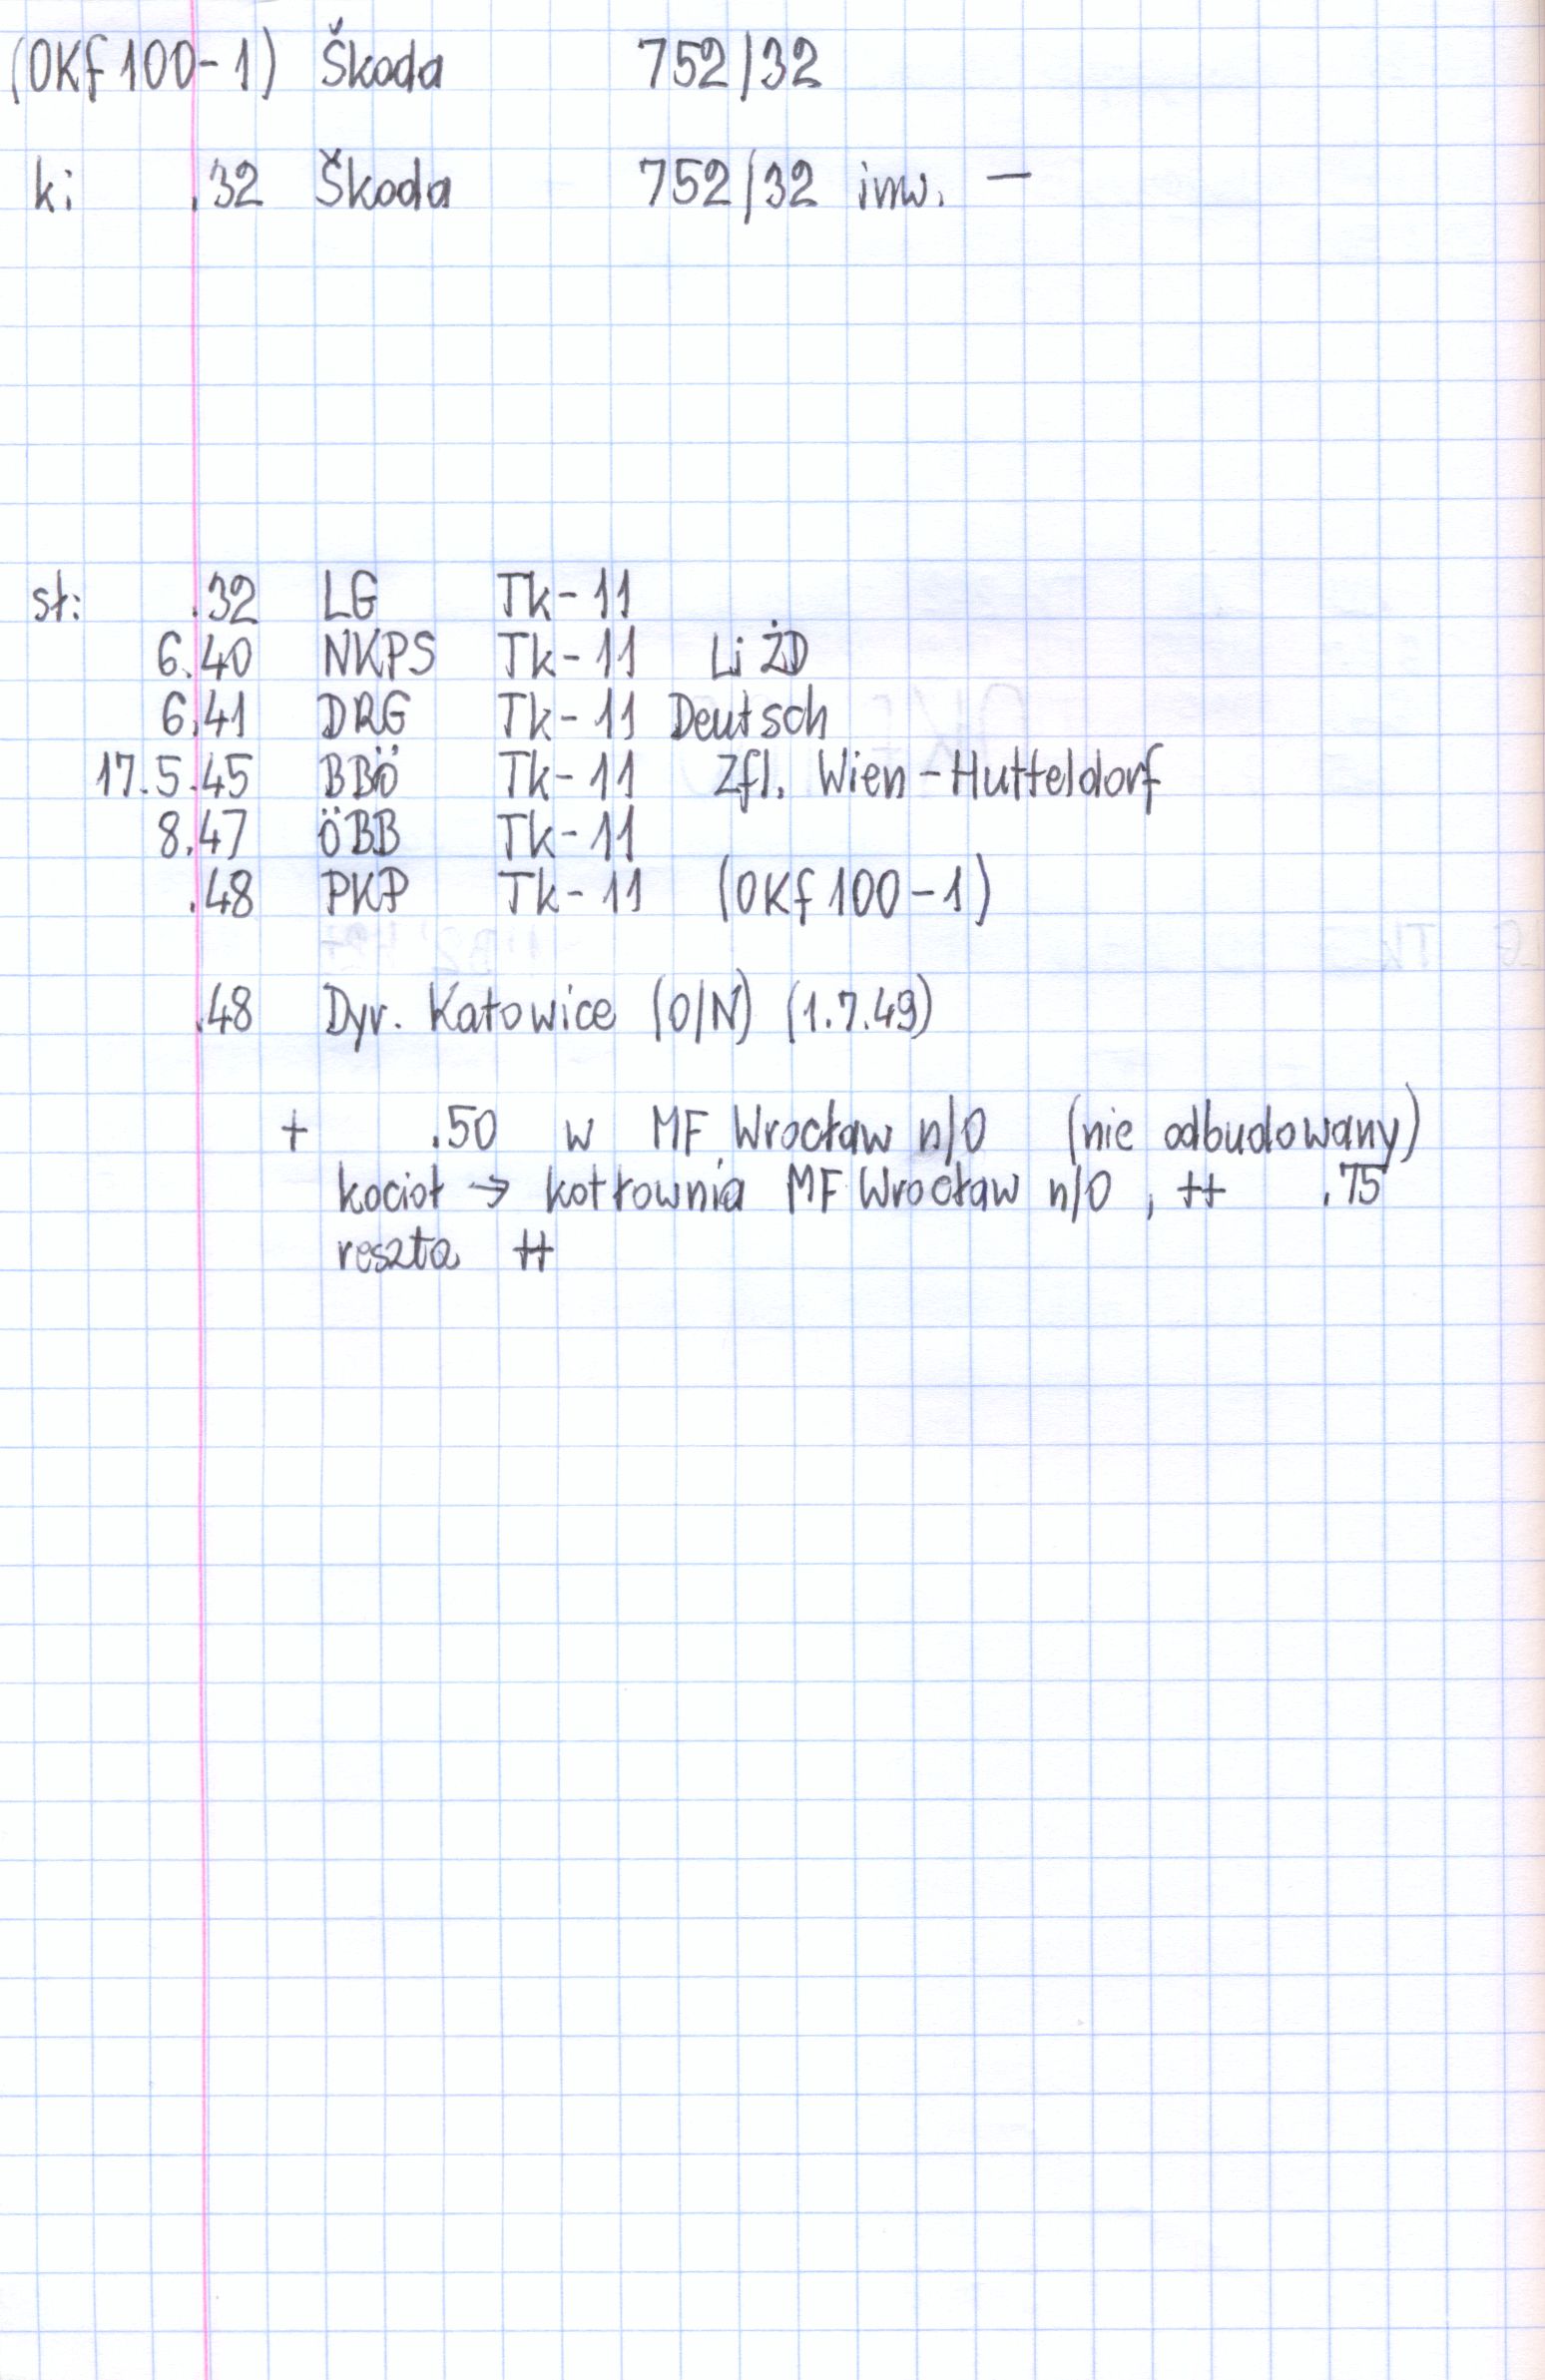 (OKf 100-1) Škoda 752/32
k: .32 Škoda 752/32 inw. —
sł: .32 LG Tk-11
6.40 NKPS Tk-11 Li ŻD
6.41 DRG Tk-11 Deutsch
17.5.45 BBÖ Tk-11 Zfl. Wien-Hutteldorf
8.47 ÖBB Tk-11
.48 PKP Tk-11 (OKf 100-1)
.48 Dyr. Katowice (O/N) (1.7.49)
+ .50 w MF Wrocław n/O (nie odbudowany)
kocioł → kotłownia MF Wrocław n/O, ++ .75
reszta ++